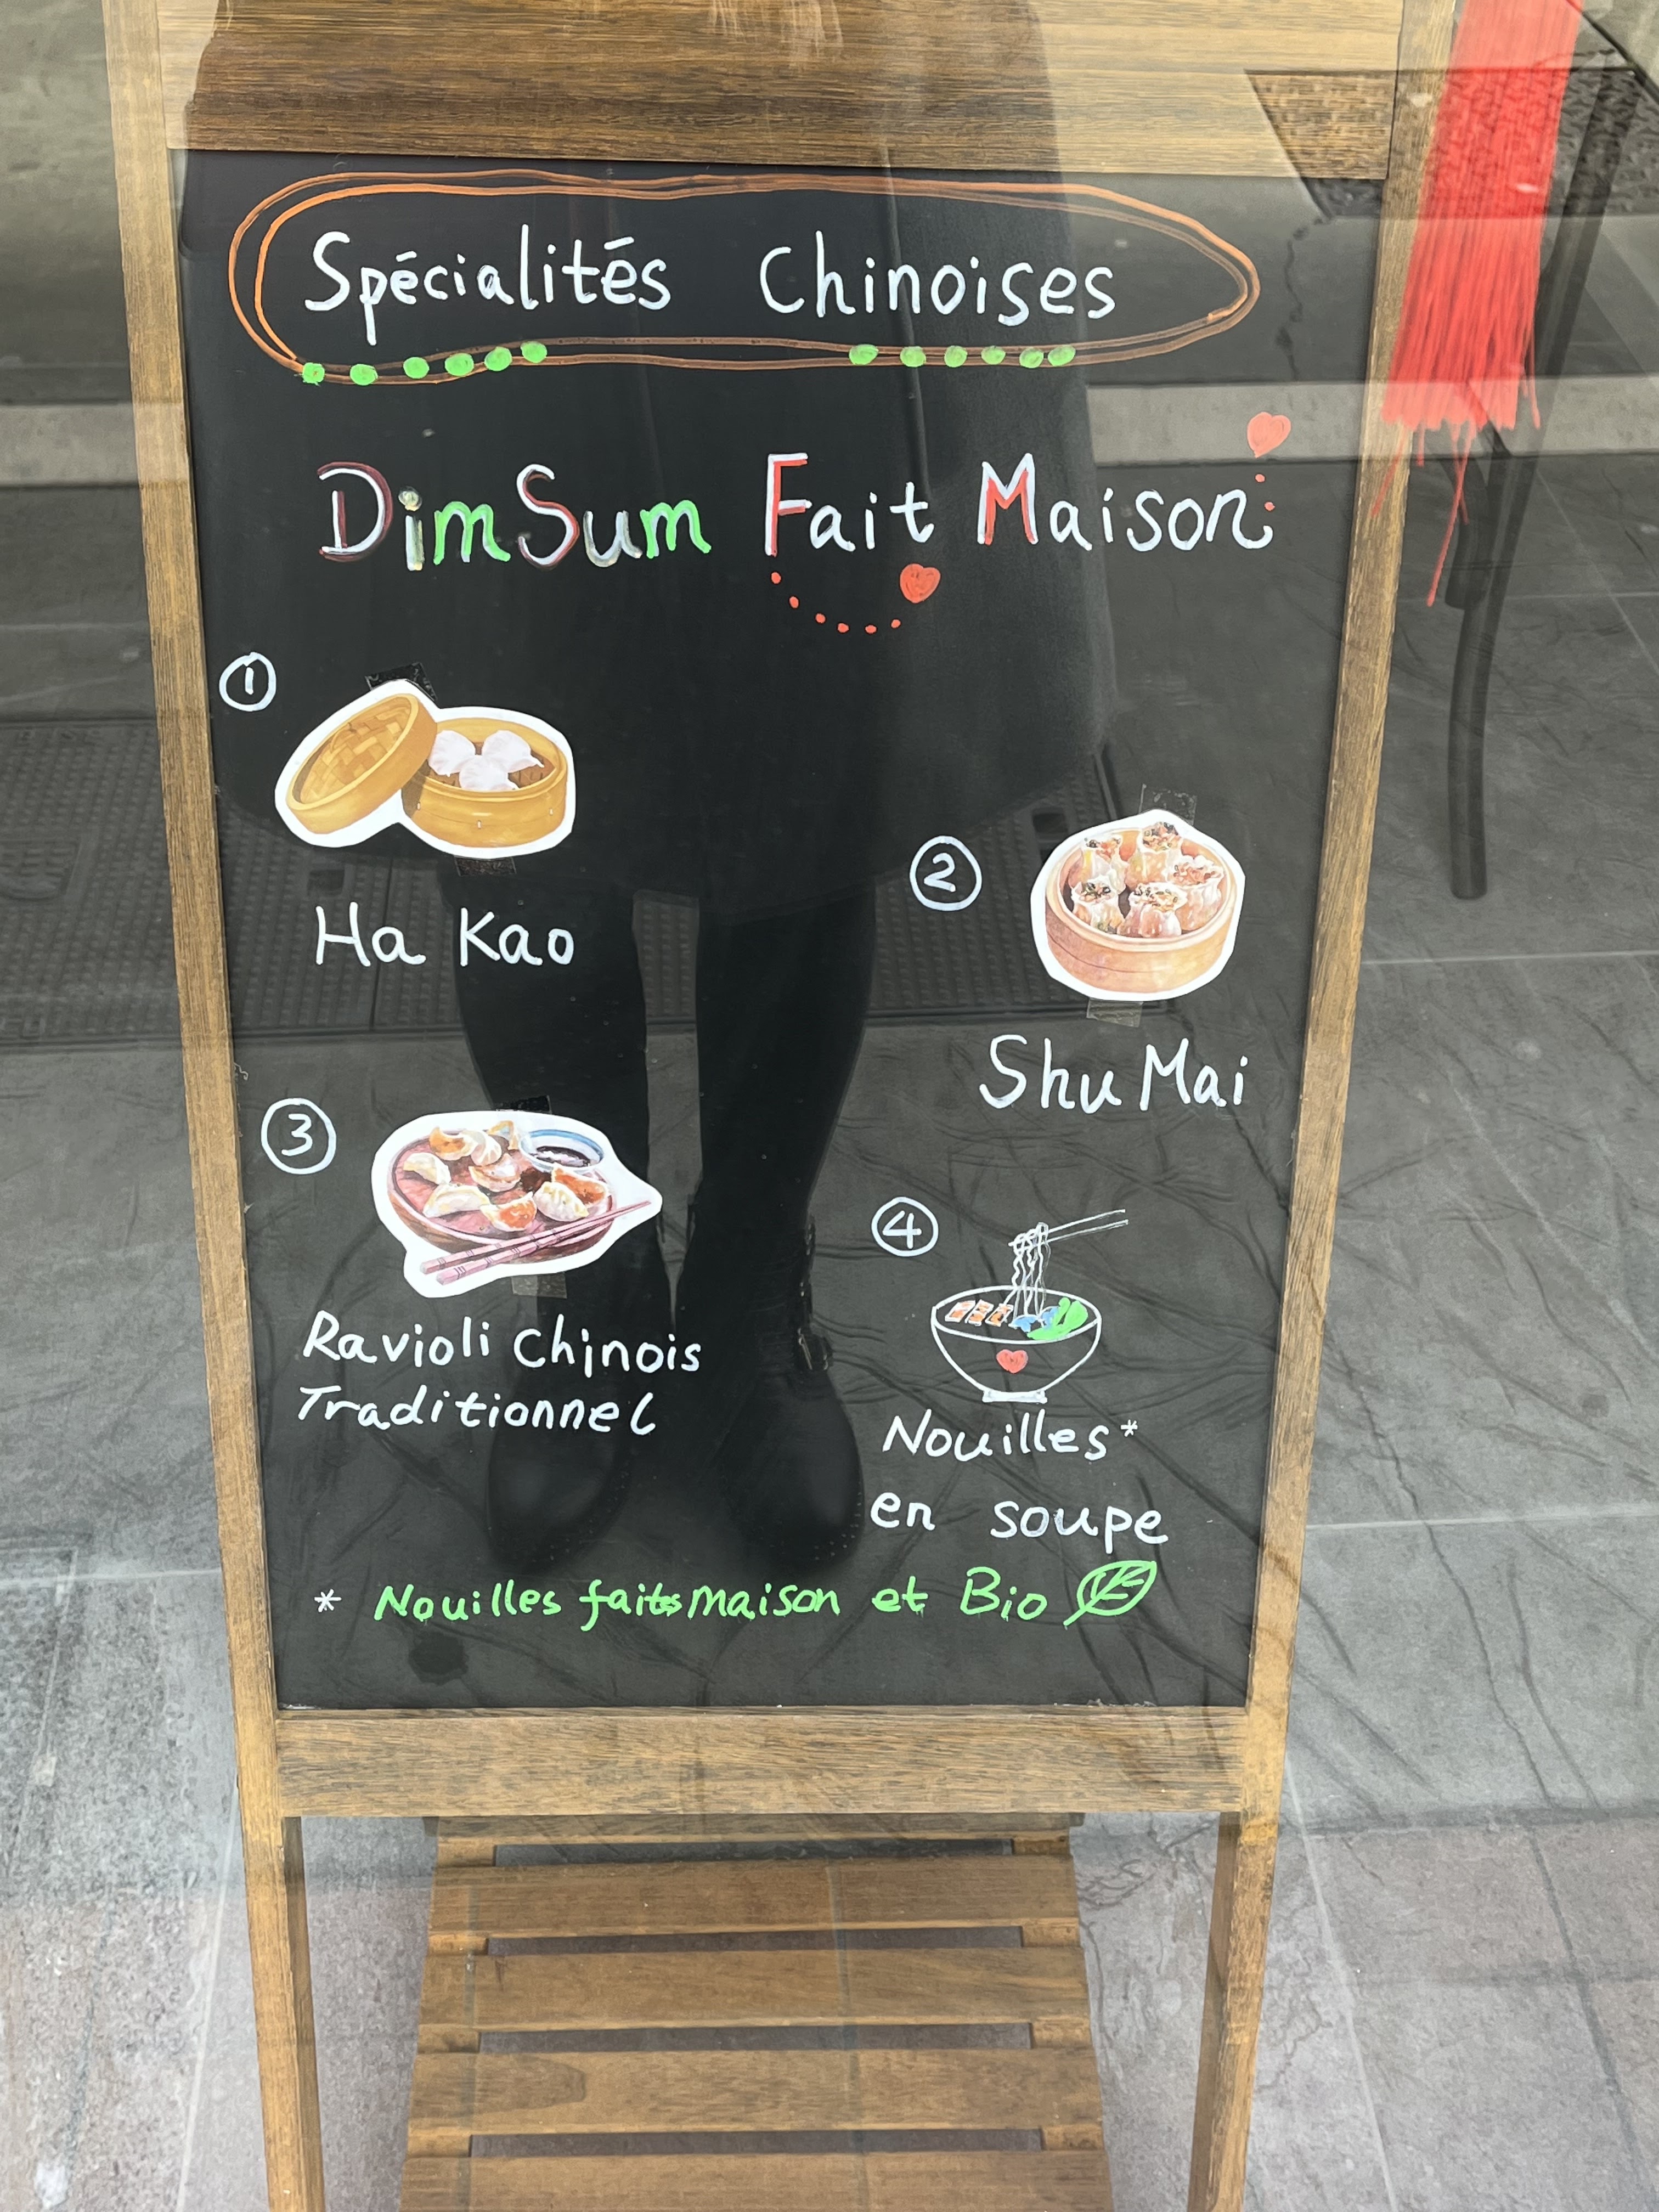 Spécialités Chinoises
DimSum Fait Maison
①
Ha Kao
②
Shu Mai
③
Ravioli Chinois
Traditionnel
④
Nouilles*
en soupe
* Nouilles faits maison et Bio